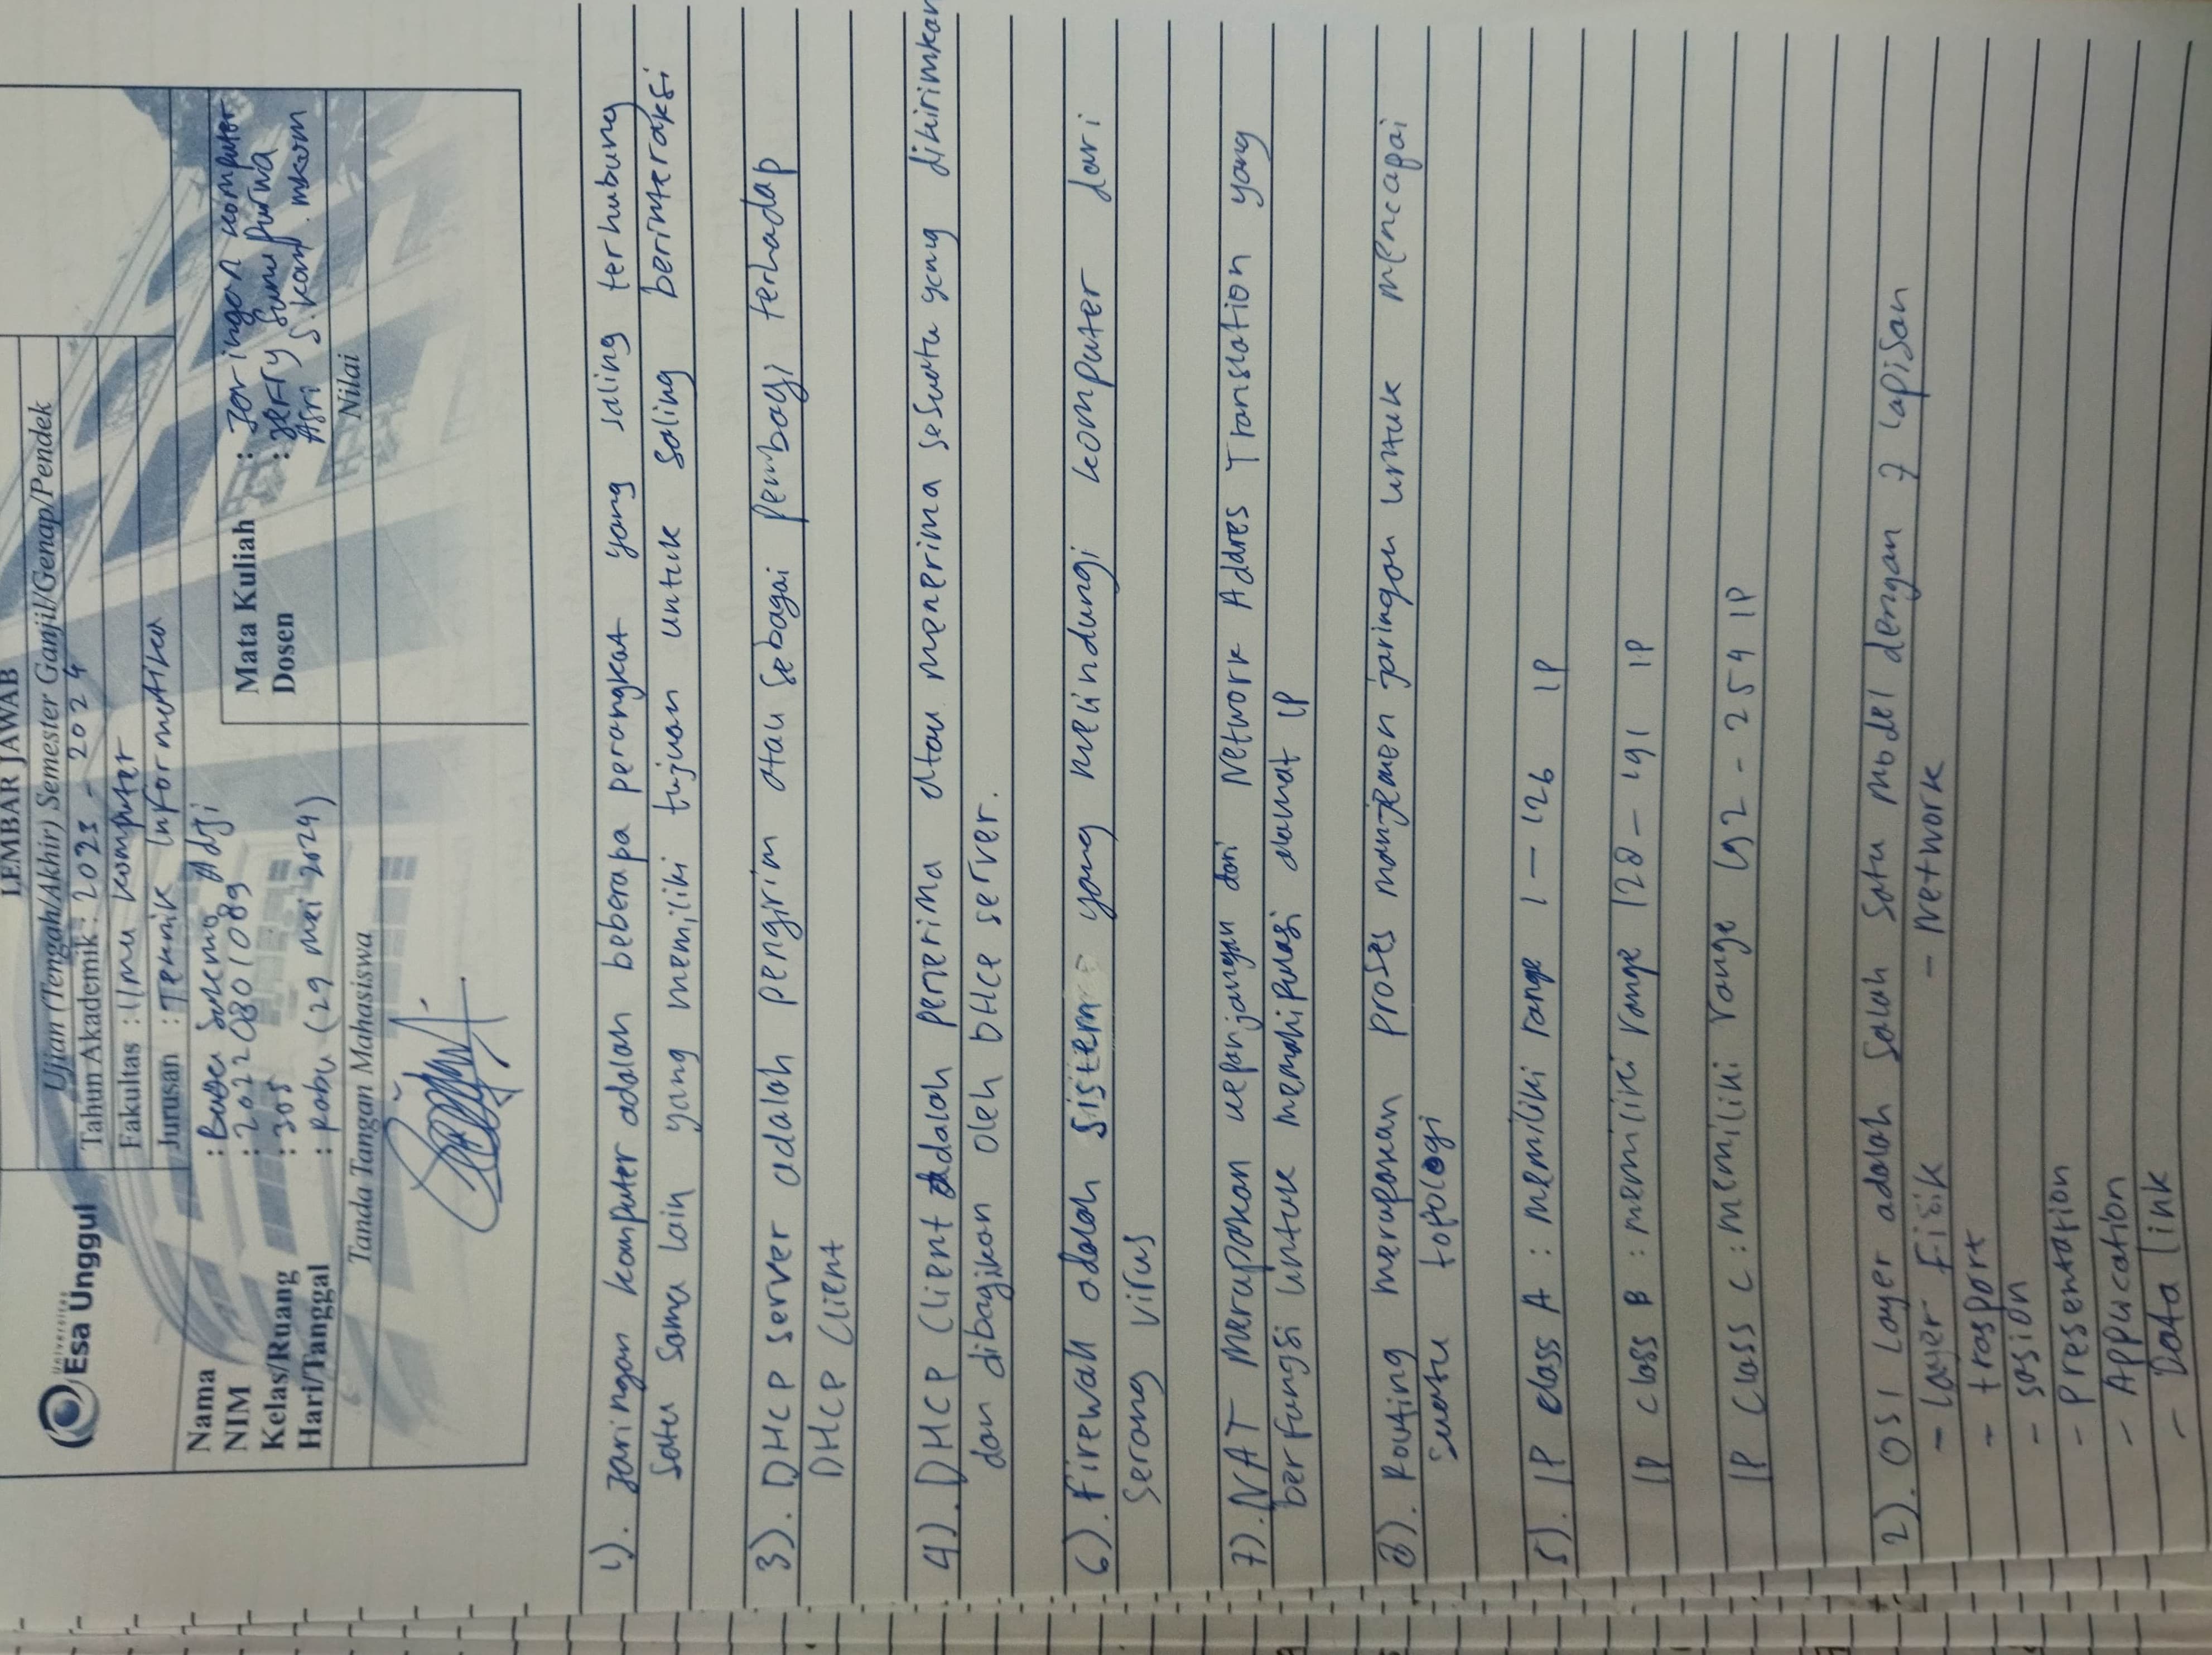 LEMBAR JAWAB
Ujian (Tengah/Akhir) Semester Ganjil/Genap/Pendek
Tahun Akademik : 2023 - 2024
Fakultas : Ilmu komputer
Jurusan : Teknik Informatika
Universitas
Esa Unggul
Nama :
NIM : 20220801089
Kelas/Ruang : 305
Hari/Tanggal : Rabu (29 mei 2024)
Mata Kuliah : Jaringan komputer
Dosen : Jefry Sunupurwa
Asri S.kom. mkom
Tanda Tangan Mahasiswa
Nilai
1). Jaringan komputer adalah beberapa perangkat yang saling terhubung
satu sama lain yang memiliki tujuan untuk saling berinteraksi
3). DHCP server adalah pengirim atau sebagai pembagi terhadap
DHCP Client
4). DHCP Client adalah penerima atau menerima sesuatu yang dikirimkan
dan dibagikan oleh DHCP server.
6). Firewall adalah sistem yang melindungi komputer dari
serang virus
7). NAT merupakan kepanjangan dari Network Addres Translation yang
berfungsi untuk memanipulasi alamat IP
8). Routing merupakan proses manjemen jaringan untuk mencapai
suatu topologi
5). IP class A : memiliki range 1 - 126 IP
IP class B : memiliki range 128 - 191 IP
IP Class C : memiliki range 192 - 254 IP
2). OSI Layer adalah salah satu model dengan 7 lapisan
- Layer Fisik - Network
- trasport
- sasion
- Presentation
- Application
- Data link